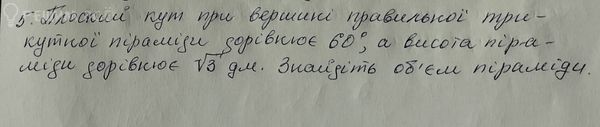 5. Плоский кут при вершині правильної три-
кутної піраміди дорівнює 60°, а висота піра-
міди дорівнює √3 дм. Знайдіть об'єм піраміди.